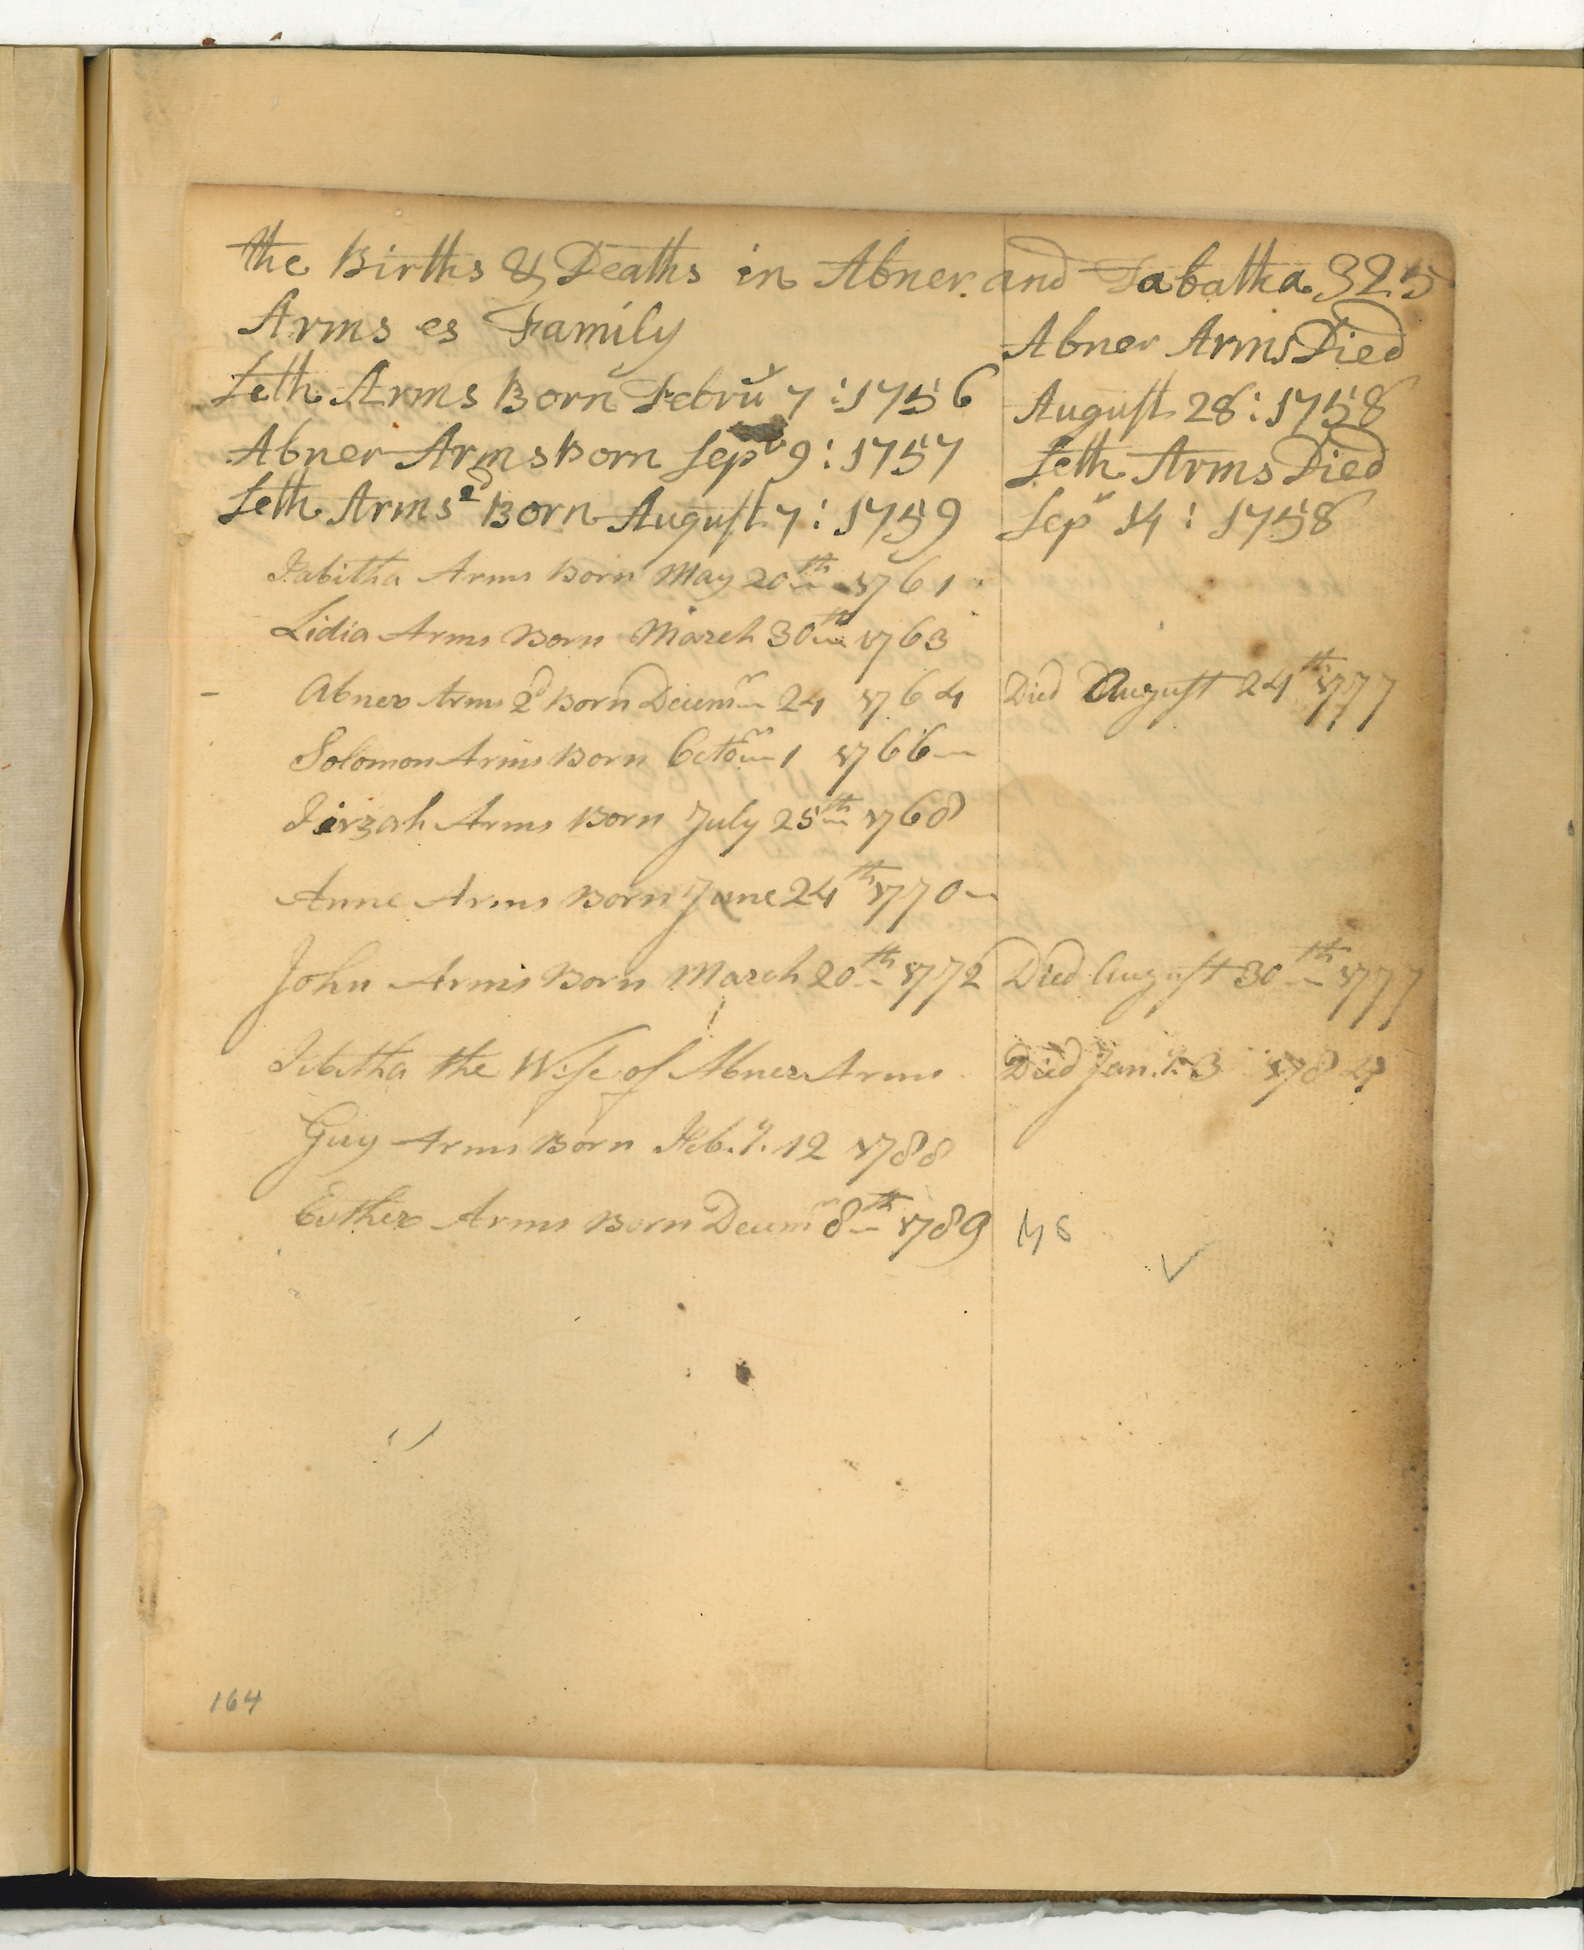 the Births & Deaths in Abner and Tabatha 325
Arms es Family
Abner Arms Died
Seth Arms Born Febru^y 7 : 1756
August 28 : 1758
Abner Arms Born Sep^r 9 : 1757
Seth Arms Died
Seth Arms 2^d Born August 7 : 1759
Sep^r 14 : 1758
Tabitha Arms Born May 20^th 1761
Lidia Arms Born March 30^th 1763
Abner Arms 2^d Born Decem^r 24 1764 Died August 24^th 1777
Solomon Arms Born Octo^r 1 1766
Tirzah Arms Born July 25^th 1768
Anne Arms Born June 24^th 1770
John Arms Born March 20^th 1772 Died August 30^th 1777
Tibitha the Wife of Abner Arms Died Jan.^y 3 1784
Guy Arms Born Feb.^y 12 1788
Esther Arms Born Decem^r 8^th 1789
164